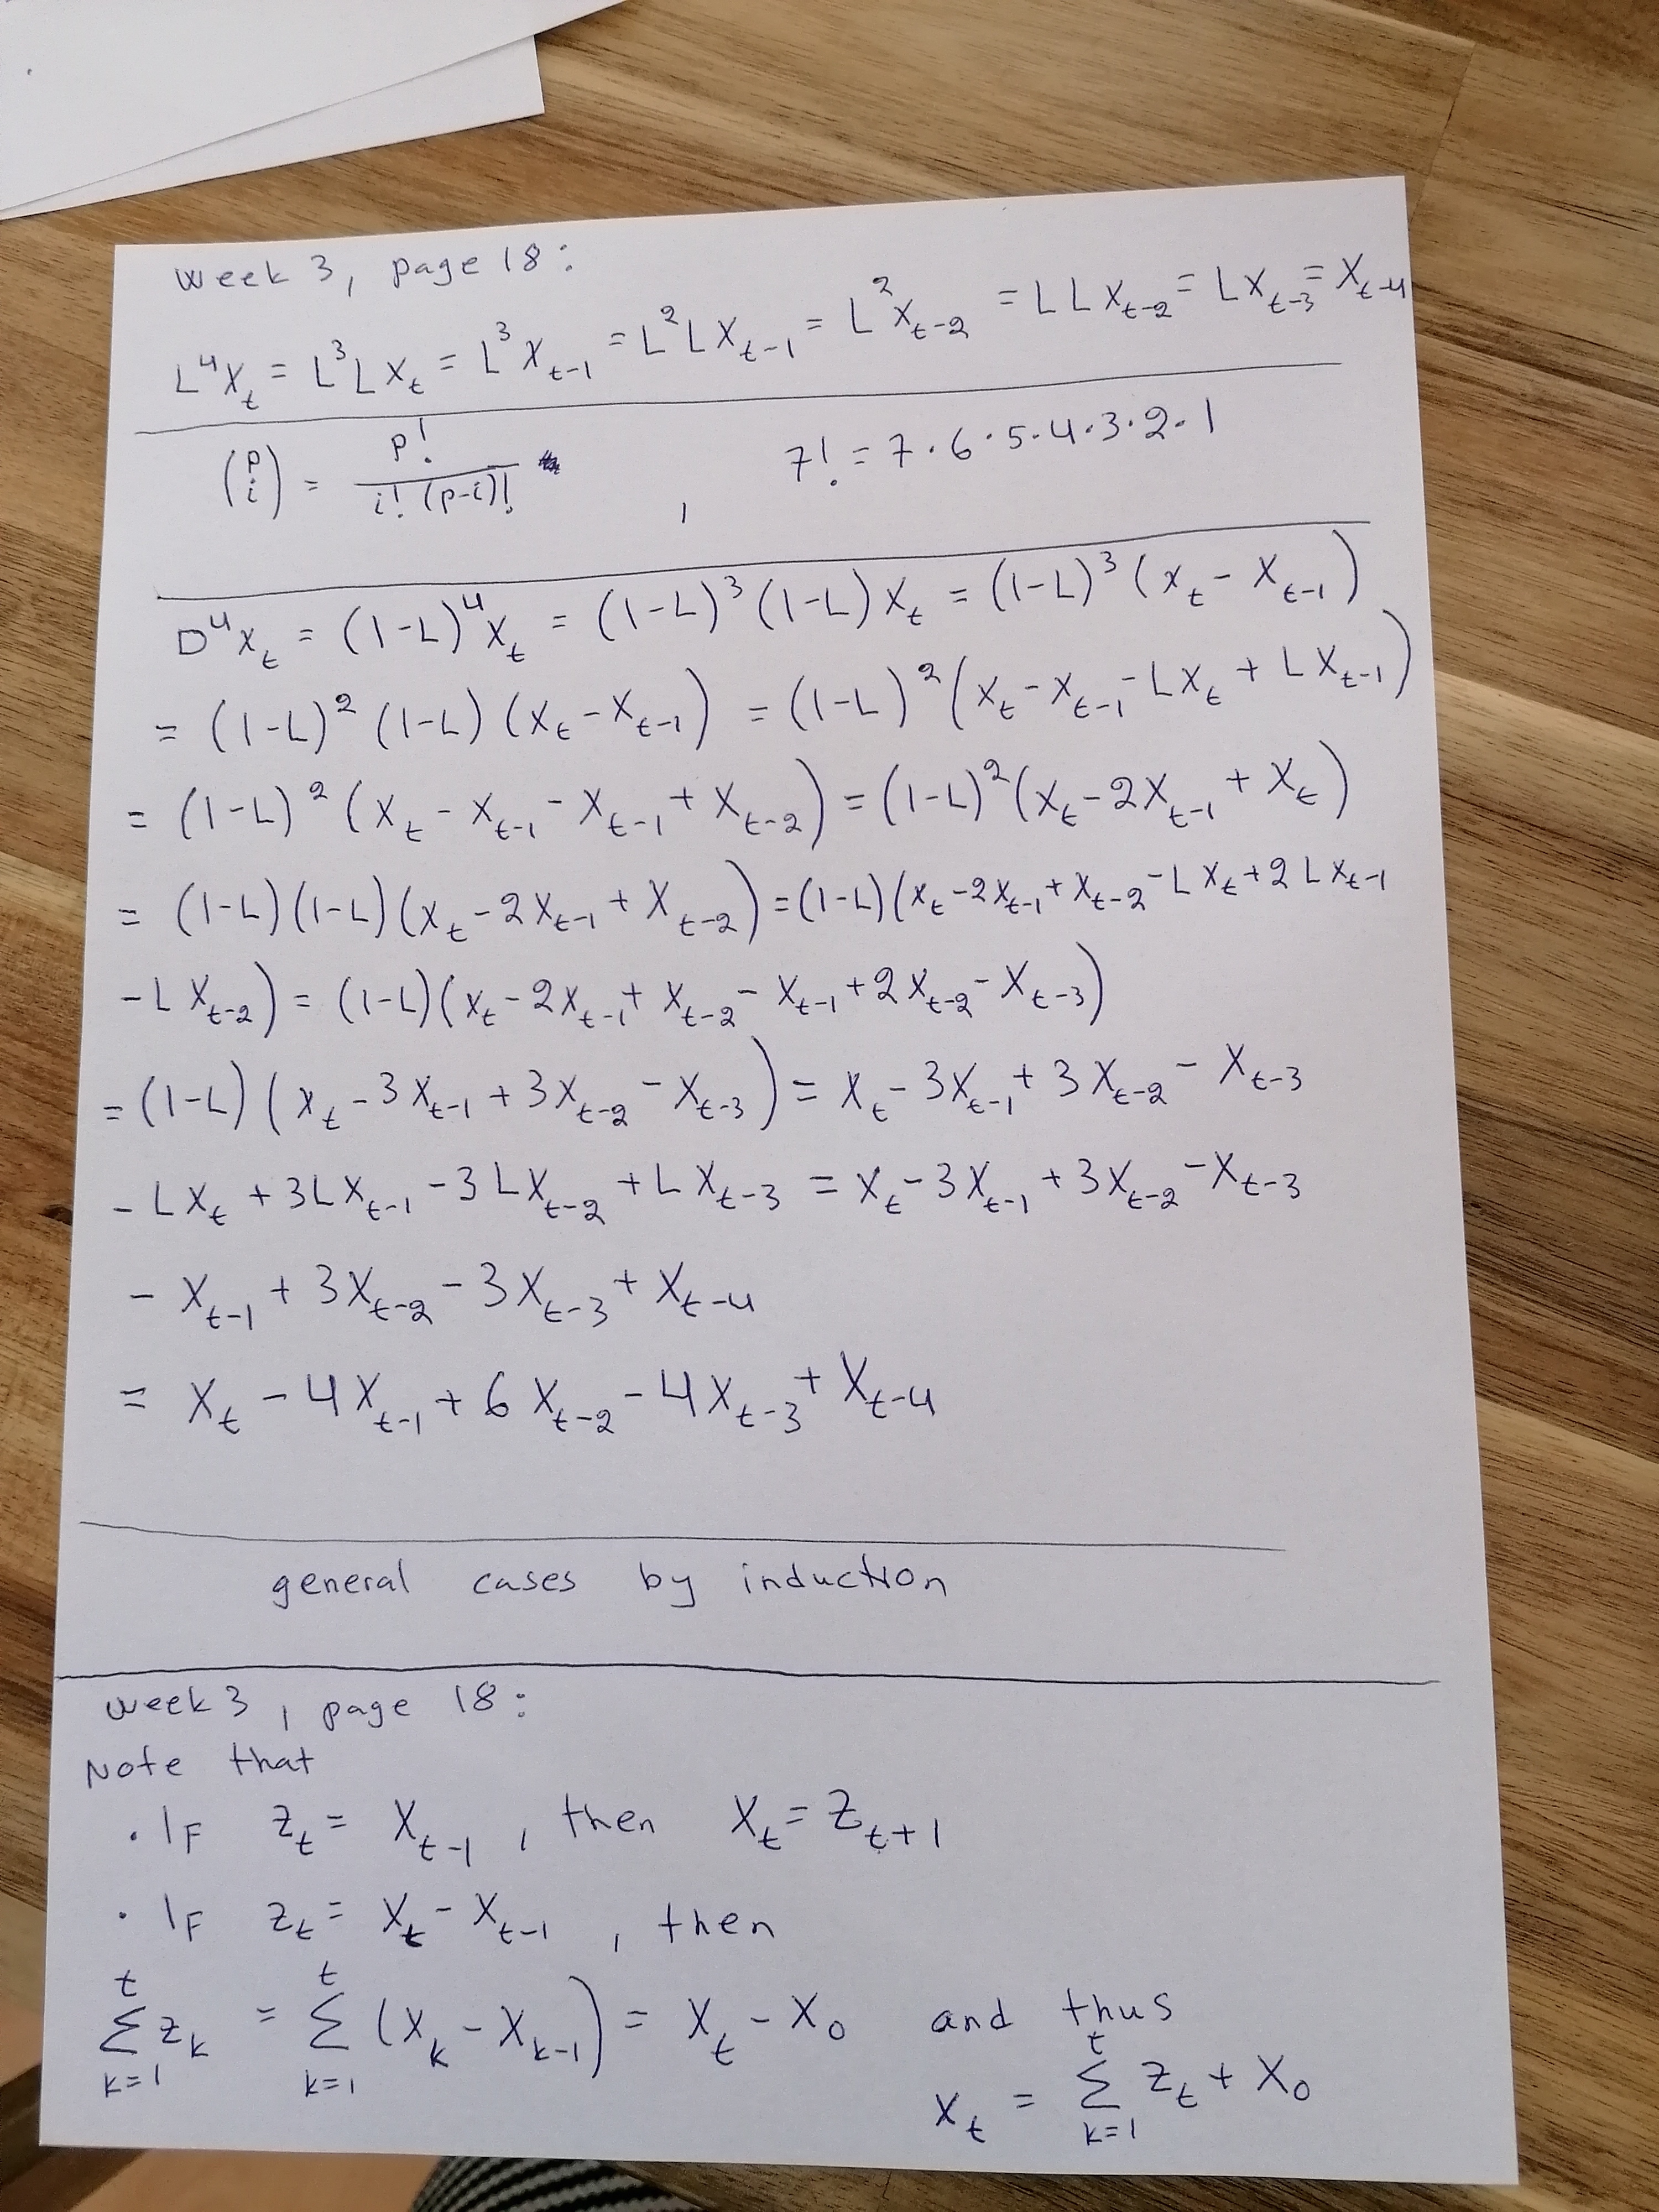 week 3, page 18:
L⁴X_t = L³LX_t = L³X_{t-1} = L²LX_{t-1} = L²X_{t-2} = LLX_{t-2} = LX_{t-3} = X_{t-4}
(p i) = p! / i!(p-i)! , 7! = 7·6·5·4·3·2·1
D⁴X_t = (1-L)⁴X_t = (1-L)³(1-L)X_t = (1-L)³(X_t - X_{t-1})
= (1-L)²(1-L)(X_t - X_{t-1}) = (1-L)²(X_t - X_{t-1} - LX_t + LX_{t-1})
= (1-L)²(X_t - X_{t-1} - X_{t-1} + X_{t-2}) = (1-L)²(X_t - 2X_{t-1} + X_t)
= (1-L)(1-L)(X_t - 2X_{t-1} + X_{t-2}) = (1-L)(X_t - 2X_{t-1} + X_{t-2} - LX_t + 2LX_{t-1}
- LX_{t-2}) = (1-L)(X_t - 2X_{t-1} + X_{t-2} - X_{t-1} + 2X_{t-2} - X_{t-3})
= (1-L)(X_t - 3X_{t-1} + 3X_{t-2} - X_{t-3}) = X_t - 3X_{t-1} + 3X_{t-2} - X_{t-3}
- LX_t + 3LX_{t-1} - 3LX_{t-2} + LX_{t-3} = X_t - 3X_{t-1} + 3X_{t-2} - X_{t-3}
- X_{t-1} + 3X_{t-2} - 3X_{t-3} + X_{t-4}
= X_t - 4X_{t-1} + 6X_{t-2} - 4X_{t-3} + X_{t-4}
general cases by induction
week 3, page 18:
Note that
· IF Z_t = X_{t-1}, then X_t = Z_{t+1}
· IF Z_t = X_t - X_{t-1}, then
∑_{k=1}^{t} Z_k = ∑_{k=1}^{t} (X_k - X_{k-1}) = X_t - X_0 and thus
X_t = ∑_{k=1}^{t} Z_t + X_0